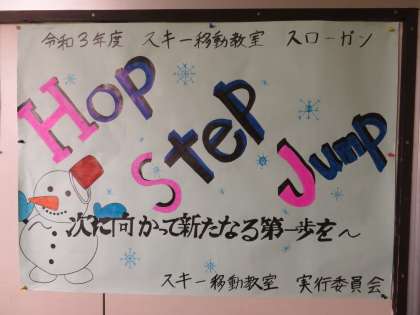 令和3年度 スキー移動教室 スローガン
Hop
Step
Jump
～次に向かって新たなる第一歩を～
スキー移動教室 実行委員会